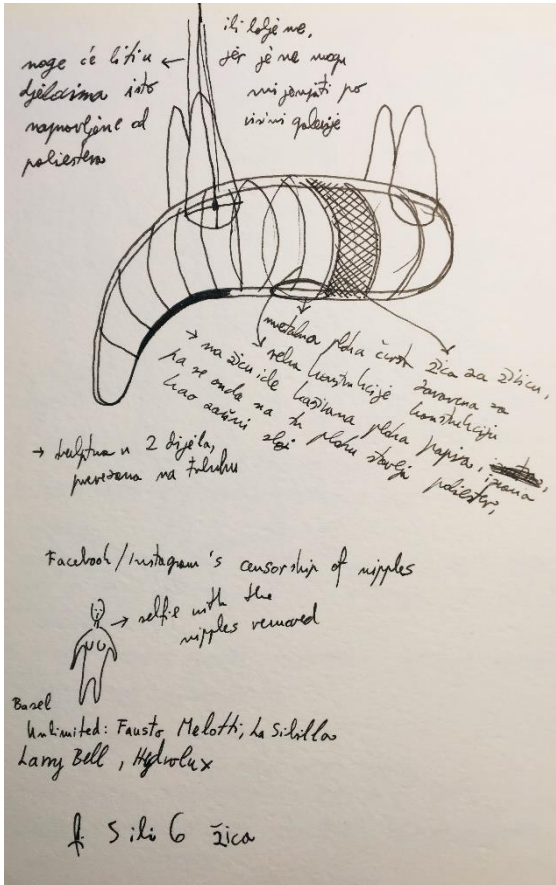 noge će biti u
djelovima isto
napravljene od
poliestera
ili bolje ne,
jer je ne mogu
mijenjati po
visini galerije
metalna ploha čvrst žica za žbicu,
konstrukcije zavarena za konstrukciju
→ na žicu ide kaširana ploha papira,
pa se onda na tu plohu stavlja poliester,
kao završni sloj
→ skulptura u 2 dijela,
prerezana na trbuhu
Facebook/Instagram's censorship of nipples
→ selfie with the
nipples removed
Basel
Unlimited: Fausto Melotti, La Sibilla
Larry Bell, Hydrolux
5 ili 6 žica